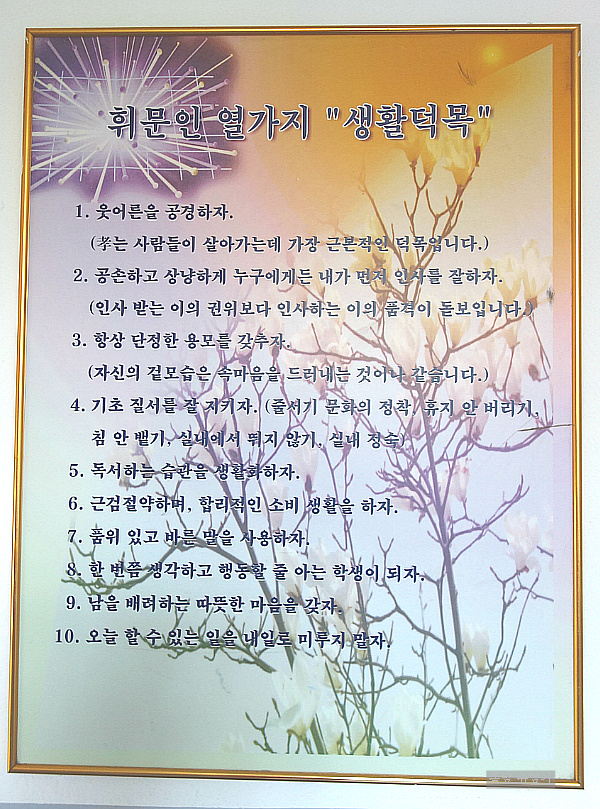 휘문인 열가지 "생활덕목"
1. 웃어른을 공경하자.
(孝는 사람들이 살아가는데 가장 근본적인 덕목입니다.)
2. 공손하고 상냥하게 누구에게든 내가 먼저 인사를 잘하자.
(인사 받는 이의 권위보다 인사하는 이의 품격이 돋보입니다.)
3. 항상 단정한 용모를 갖추자.
(자신의 겉모습은 속마음을 드러내는 것이나 같습니다.)
4. 기초 질서를 잘 지키자. (줄서기 문화의 정착, 휴지 안 버리기,
침 안 뱉기, 실내에서 뛰지 않기, 실내 정숙)
5. 독서하는 습관을 생활화하자.
6. 근검절약하며, 합리적인 소비 생활을 하자.
7. 품위 있고 바른 말을 사용하자.
8. 한 번쯤 생각하고 행동할 줄 아는 학생이 되자.
9. 남을 배려하는 따뜻한 마음을 갖자.
10. 오늘 할 수 있는 일을 내일로 미루지 말자.